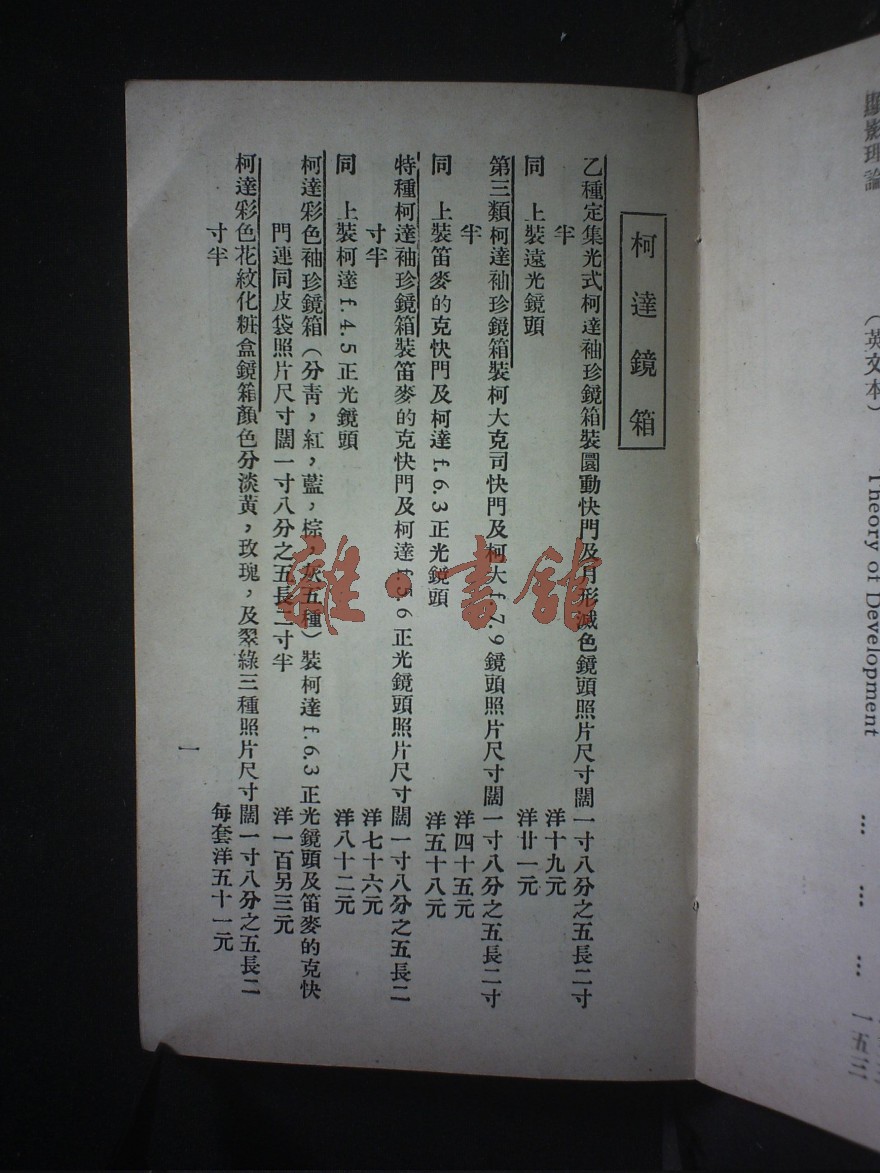 顯影理論 (英文本) Theory of Development … … … 一五二
柯達鏡箱
乙種定集光式柯達袖珍鏡箱裝圜動快門及月形滅色鏡頭照片尺寸闊一寸八分之五長二寸
半 洋十九元
同 上裝遠光鏡頭 洋廿一元
第三類柯達袖珍鏡箱裝柯大克司快門及柯大 f.7.9 鏡頭照片尺寸闊一寸八分之五長二寸
半 洋四十五元
同 上裝笛麥的克快門及柯達 f.6.3 正光鏡頭 洋五十八元
特種柯達袖珍鏡箱裝笛麥的克快門及柯達 f.5.6 正光鏡頭照片尺寸闊一寸八分之五長二
寸半 洋七十六元
同 上裝柯達 f.4.5 正光鏡頭 洋八十二元
柯達彩色袖珍鏡箱(分靑,紅,藍,棕,灰五種)裝柯達 f.6.3 正光鏡頭及笛麥的克快
門連同皮袋照片尺寸闊一寸八分之五長二寸半 洋一百另三元
柯達彩色花紋化粧盒鏡箱顏色分淡黃,玫瑰,及翠綠三種照片尺寸闊一寸八分之五長二
寸半 每套洋五十一元
一
雜·書館